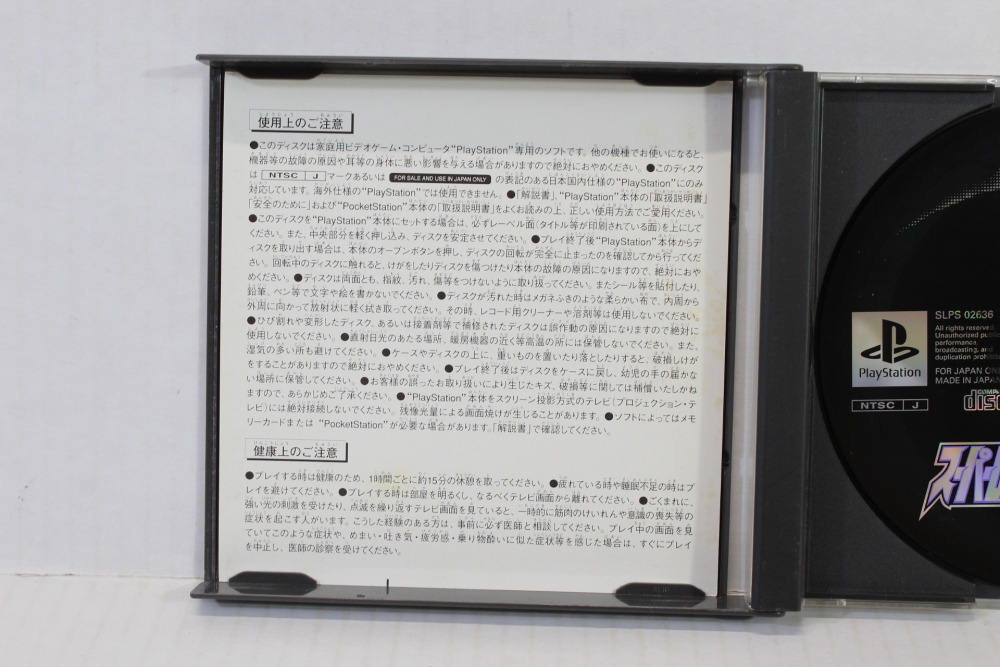 使用上のご注意
●このディスクは家庭用ビデオゲーム・コンピュータ“PlayStation”専用のソフトです。他の機種でお使いになると、
機器等の故障の原因や耳等の身体に悪い影響を与える場合がありますので絶対におやめください。●このディスク
は NTSC J マークあるいは FOR SALE AND USE IN JAPAN ONLY の表記のある日本国内仕様の“PlayStation”にのみ
対応しています。海外仕様の“PlayStation”では使用できません。●「解説書」、“PlayStation”本体の「取扱説明書」
「安全のために」および“PocketStation”本体の「取扱説明書」をよくお読みの上、正しい使用方法でご愛用ください。
●このディスクを“PlayStation”本体にセットする場合は、必ずレーベル面(タイトル等が印刷されている面)を上にして
ください。また、中央部分を軽く押し込み、ディスクを安定させてください。●プレイ終了後“PlayStation”本体からデ
ィスクを取り出す場合は、本体のオープンボタンを押し、ディスクの回転が完全に止まったのを確認してから行ってくだ
さい。回転中のディスクに触れると、けがをしたりディスクを傷つけたり本体の故障の原因になりますので、絶対におや
めください。●ディスクは両面とも、指紋、汚れ、傷等をつけないように取り扱ってください。またシール等を貼付したり、
鉛筆、ペン等で文字や絵を書かないでください。●ディスクが汚れた時はメガネふきのような柔らかい布で、内周から
外周に向かって放射状に軽く拭き取ってください。その時、レコード用クリーナーや溶剤等は使用しないでください。
●ひび割れや変形したディスク、あるいは接着剤等で補修されたディスクは誤作動の原因になりますので絶対に
使用しないでください。●直射日光のあたる場所、暖房機器の近く等高温の所には保管しないでください。また、
湿気の多い所も避けてください。●ケースやディスクの上に、重いものを置いたり落としたりすると、破損しけが
をすることがありますので絶対におやめください。●プレイ終了後はディスクをケースに戻し、幼児の手の届かな
い場所に保管してください。●お客様の誤ったお取り扱いにより生じたキズ、破損等に関しては補償いたしかね
ますので、あらかじめご了承ください。●“PlayStation”本体をスクリーン投影方式のテレビ(プロジェクション・テ
レビ)には絶対接続しないでください。残像光量による画面焼けが生じることがあります。●ソフトによってはメモ
リーカードまたは “PocketStation”が必要な場合があります。「解説書」で確認してください。
健康上のご注意
●プレイする時は健康のため、1時間ごとに約15分の休憩を取ってください。●疲れている時や睡眠不足の時はプ
レイを避けてください。●プレイする時は部屋を明るくし、なるべくテレビ画面から離れてください。●ごくまれに、
強い光の刺激を受けたり、点滅を繰り返すテレビ画面を見ていると、一時的に筋肉のけいれんや意識の喪失等の
症状を起こす人がいます。こうした経験のある方は、事前に必ず医師と相談してください。プレイ中の画面を見
ていてこのような症状や、めまい・吐き気・疲労感・乗り物酔いに似た症状等を感じた場合は、すぐにプレイ
を中止し、医師の診察を受けてください。
SLPS 02636
All rights reserved
Unauthorized
performance,
broadcasting, and
duplication
PlayStation
FOR JAPAN
MADE IN JAPAN
NTSC J
スーパー